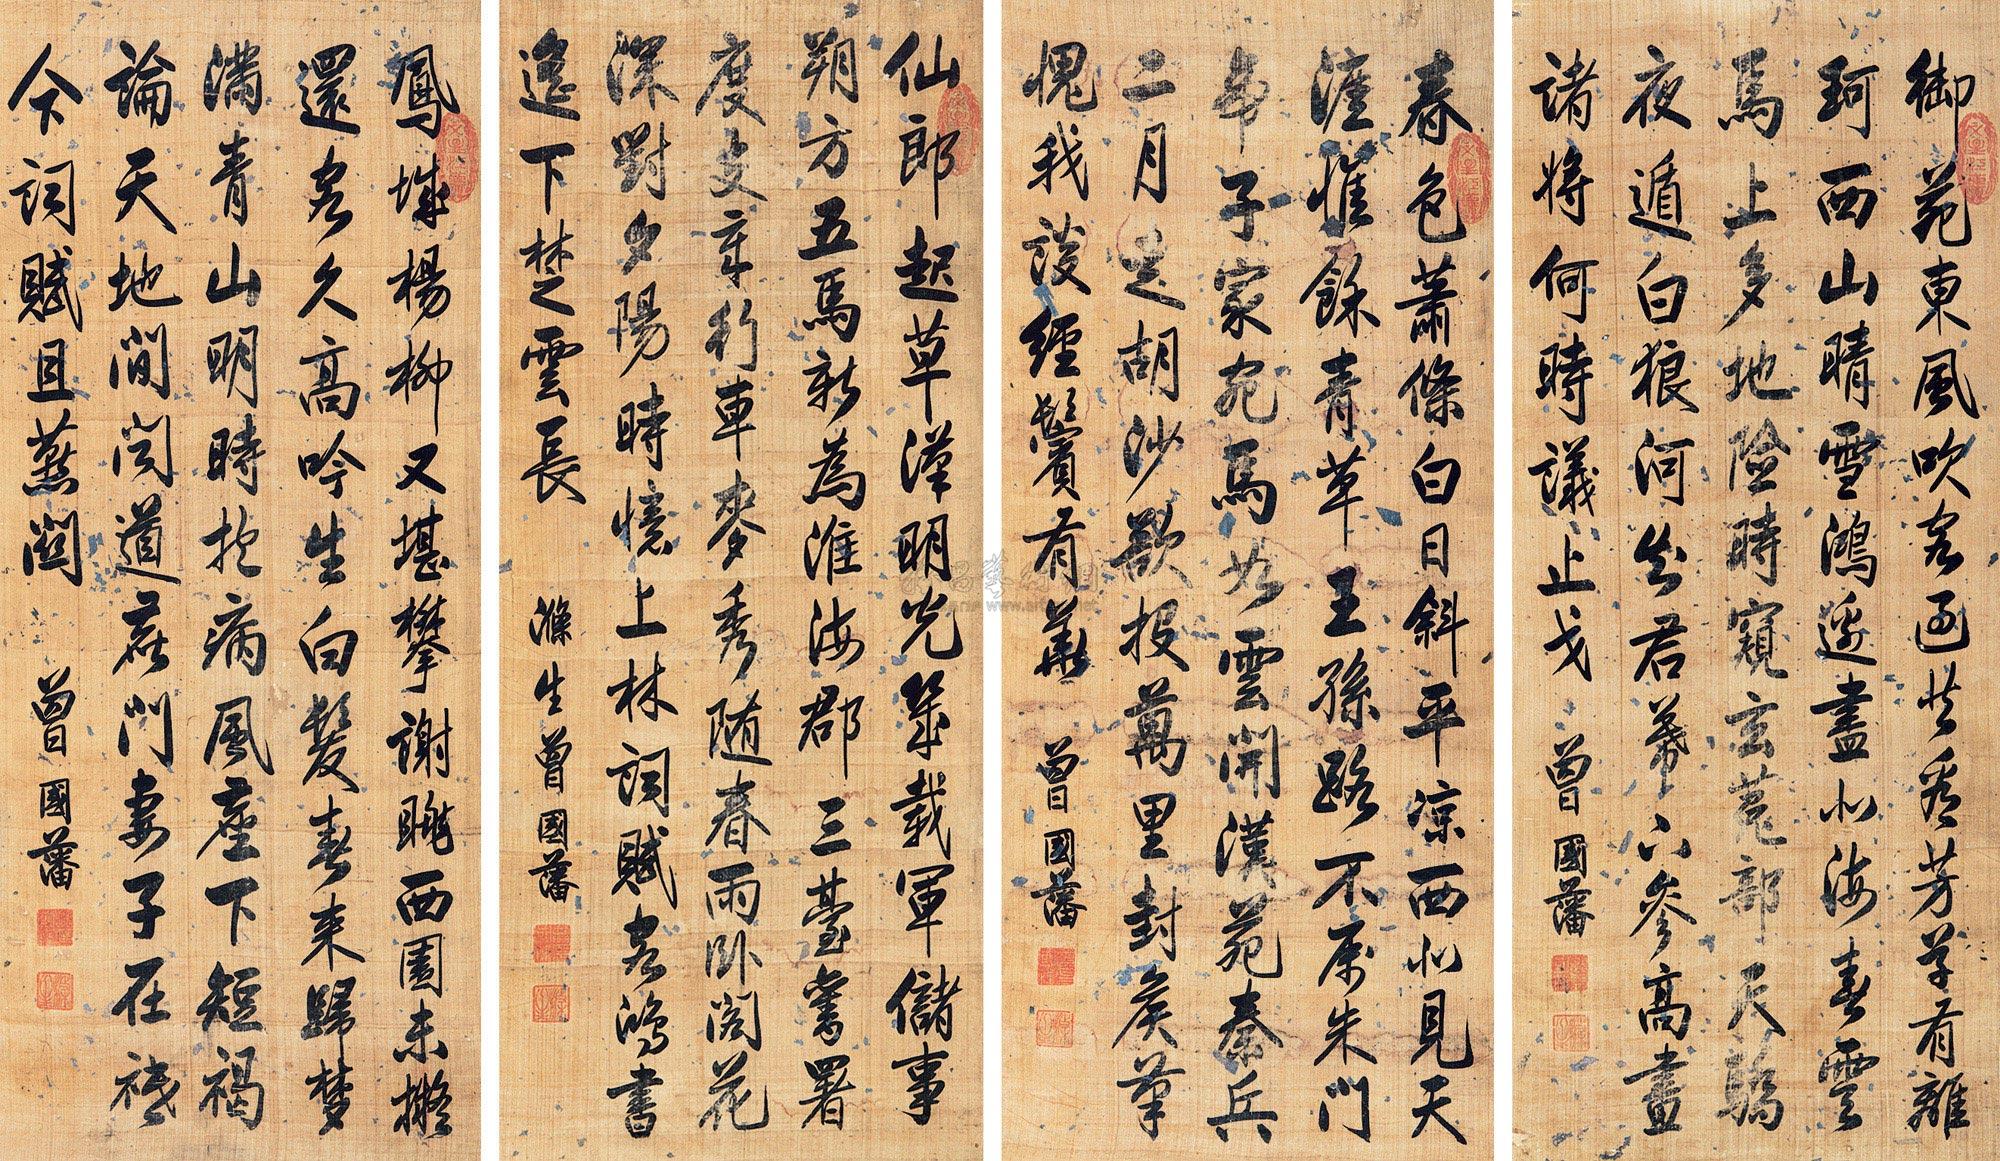 御苑東風吹客過共看芳草有離
珂西山晴雪鴻邊盡北海春雲
馬上多地險時窺玄菟部天驕
夜遁白狼河知君幕下參高畫
諸將何時議止戈 曾國藩
春色蕭條白日斜平涼西北見天
涯惟餘青草王孫路不屬朱門
帝子家宛馬如雲開漢苑秦兵
二月走胡沙欲投萬里封侯筆
愧我談經鬢有華 曾國藩
仙郎起草漢明光幾載軍儲事
朔方五馬新為淮海郡三臺舊署
度支章行車麥秀隨春雨臥閣花
深對夕陽時憶上林詞賦客鴻書
遙下楚雲長 滌生曾國藩
鳳城楊柳又堪攀謝朓西園未擬
還客久高吟生白髮春來歸夢
滿青山明時抱病風塵下短褐
論天地間聞道鹿門妻子在祗
今詞賦且燕關 曾國藩